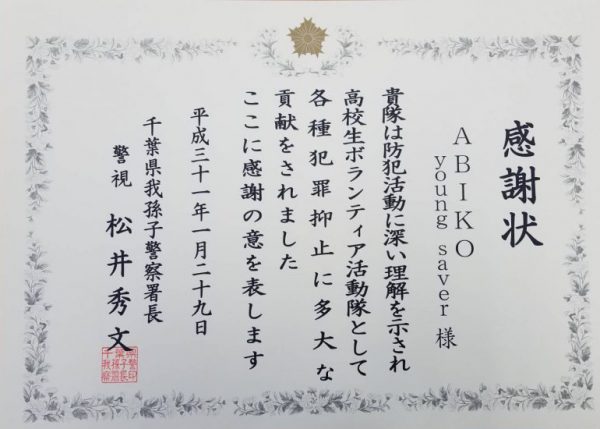 感謝状
ABIKO
young saver 様
貴隊は防犯活動に深い理解を示され
高校生ボランティア活動隊として
各種犯罪抑止に多大な
貢献をされました
ここに感謝の意を表します
平成三十一年一月二十九日
千葉県我孫子警察署長
警視 松井秀文